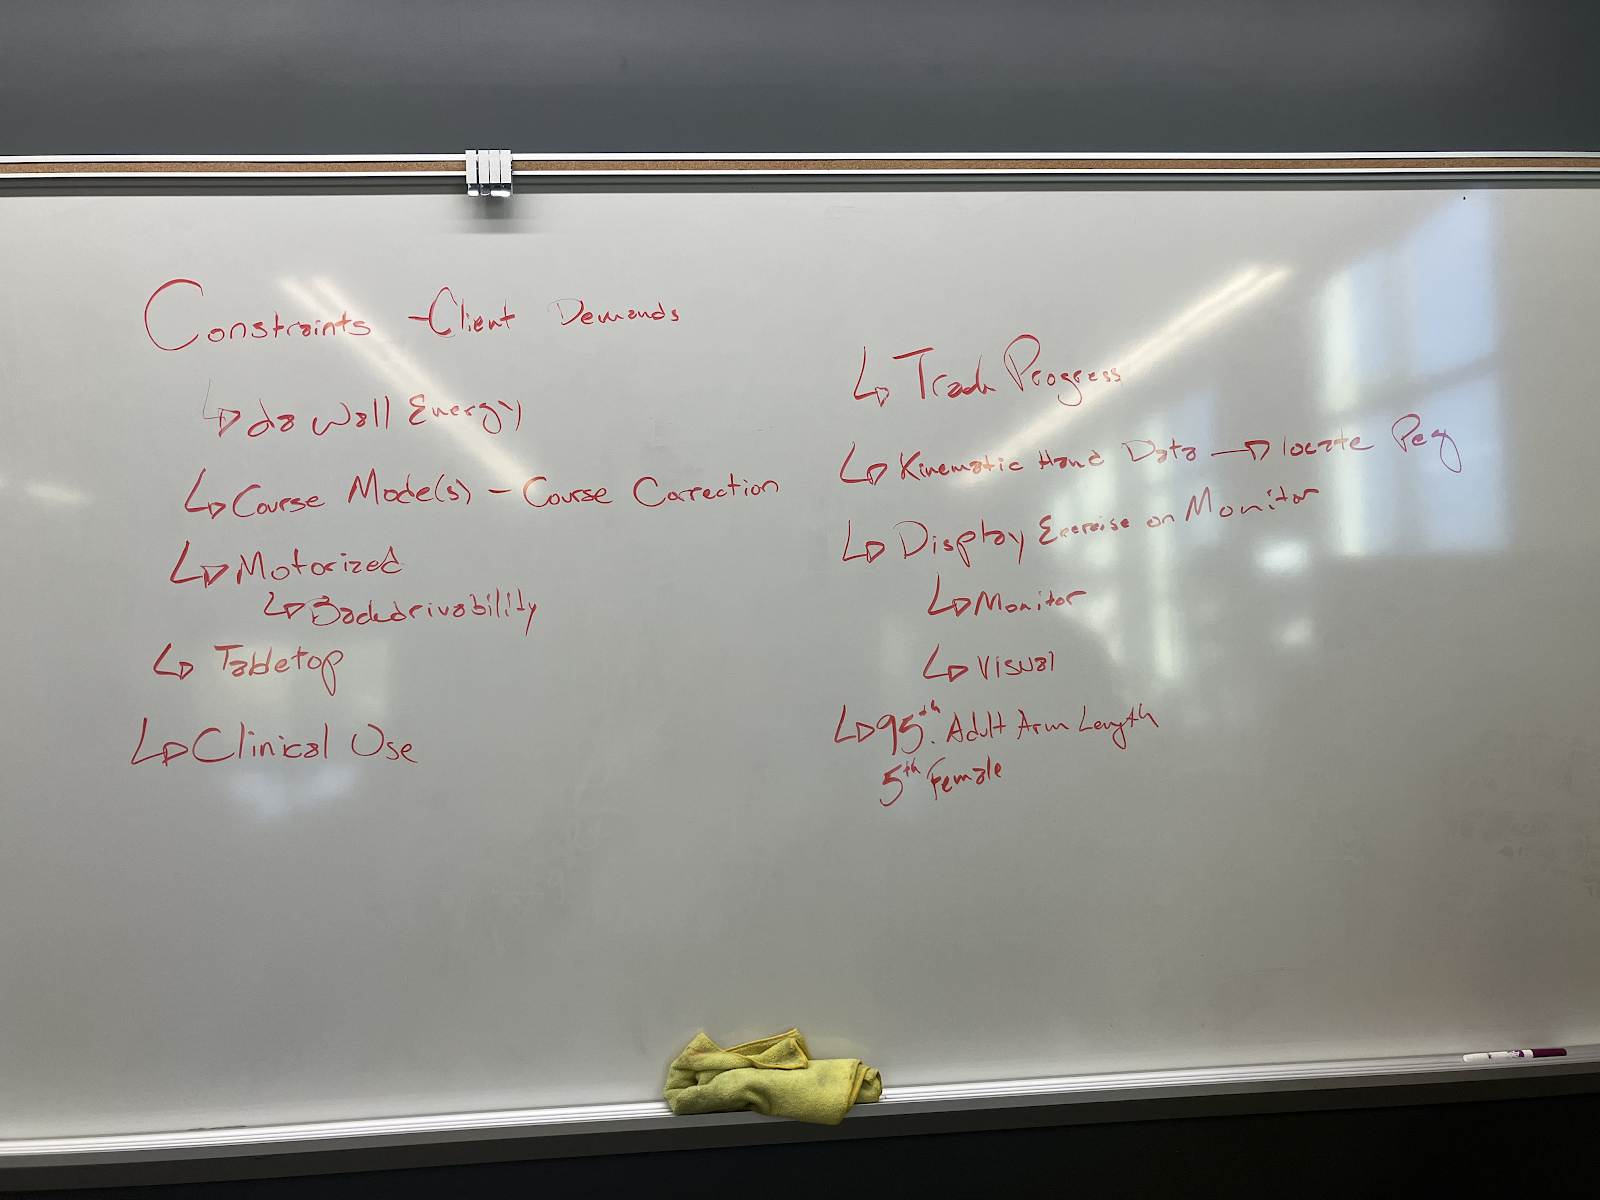 Constraints - Client Demands
↳ da Wall Energy
↳ Course Mode(s) - Course Correction
↳ Motorized
↳ Backdrivability
↳ Tabletop
↳ Clinical Use
↳ Track Progress
↳ Kinematic Hand Data → locate Peg
↳ Display Exercise on Monitor
↳ Monitor
↳ Visual
↳ 95th. Adult Arm Length
5th Female